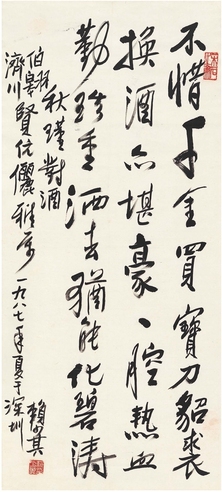 不惜千金買寶刀貂裘
換酒亦堪豪一腔熱血
勤珍重洒去猶能化碧濤
秋瑾對酒
濟川賢伉儷雅屬
一九八七年夏于深圳
賴少其